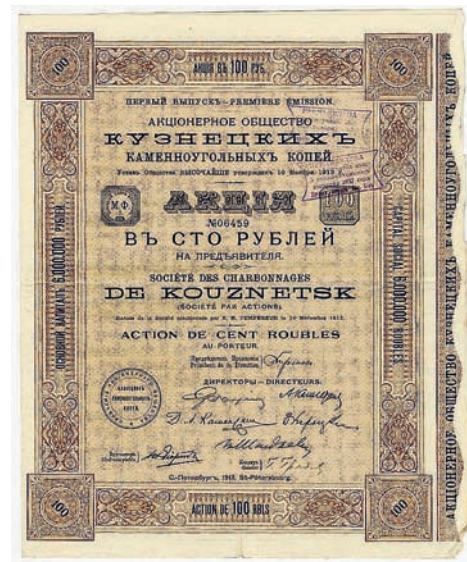 АКЦІЯ ВЪ 100 РУБ.
100
100
ПЕРВЫЙ ВЫПУСКЪ – PREMIÈRE ÉMISSION.
АКЦІОНЕРНОЕ ОБЩЕСТВО
КУЗНЕЦКИХЪ
КАМЕННОУГОЛЬНЫХЪ КОПЕЙ.
Уставъ Общества ВЫСОЧАЙШЕ утвержденъ 10 Ноября 1912 г.
М.Ф.
АКЦІЯ
100
№06459
ВЪ СТО РУБЛЕЙ
НА ПРЕДЪЯВИТЕЛЯ.
SOCIÉTÉ DES CHARBONNAGES
DE KOUZNETSK
(SOCIÉTÉ PAR ACTIONS).
ACTION DE CENT ROUBLES
AU PORTEUR.
Предсѣдатель Правленія
Président de la Direction.
ДИРЕКТОРЫ – DIRECTEURS.
С.-Петербургъ, 1913. St-Pétersbourg.
100
ACTION DE 100 RBLS
100
ОСНОВНОЙ КАПИТАЛЪ 6.000.000 РУБЛЕЙ.
CAPITAL SOCIAL 6.000.000 ROUBLES.
АКЦІОНЕРНОЕ ОБЩЕСТВО КУЗНЕЦКИХЪ КАМЕННОУГОЛЬНЫХЪ КОПЕЙ